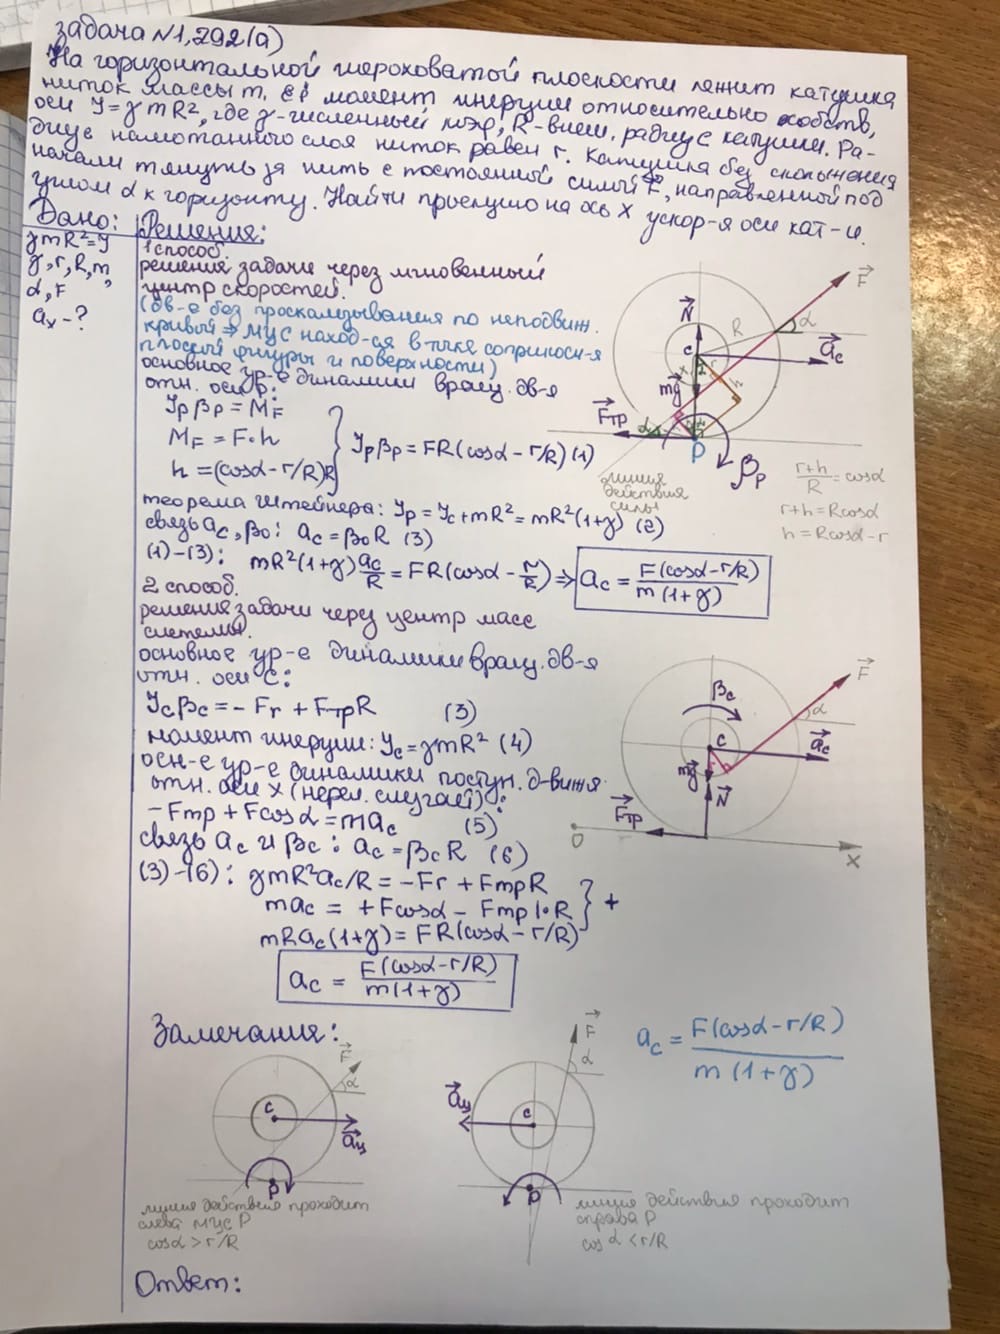 задача №1,292(а)
На горизонтальной шероховатой плоскости лежит катушка
ниток массы m. Её момент инерции относительно собств,
оси Y = γ mR², где γ-численный коэф, R-внеш. радиус катушки. Ра-
диус намотанного слоя ниток равен r. Катушка без скольжения
начали тянуть за нить с постоянной силой F, направленной под
углом α к горизонту. Найти проекцию на ось X ускор-я оси кат-и.
Дано:
γmR²=Y
γ, r, R, m,
α, F
aₓ - ?
Решения:
1 способ.
решения задачи через мгновенный
центр скоростей.
(дв-е без проскальзывания по неподвиж.
кривой ⇒ МЦС наход-ся в точке соприкосн-я
плоской фигуры и поверхности)
основное ур-е динамики вращ. дв-я
отн. оси P:
YP βP = MF
MF = F·h
h = (cosα - r/R)R
YP βP = FR(cosα - r/R) (1)
N
R
α
F
C
aC
r
h
mg
Fтр
α
P
βP
линия
действия
силы
(r+h)/R = cosα
r+h = Rcosα
h = Rcosα - r
теорема Штейнера: YP = YC + mR² = mR²(1+γ) (2)
связь aC, β0: aC = β0R (3)
(1)-(3): mR²(1+γ) aC/R = FR(cosα - r/R) ⇒ aC = F(cosα - r/R)/m(1+γ)
2 способ.
решения задачи через центр масс
системы.
основное ур-е динамики вращ. дв-я
отн. оси C:
YCβC = - Fr + FтрR (3)
момент инерции: YC = γmR² (4)
осн-е ур-е динамики поступ. движ
отн. оси X (нерел. случай):
-Fтр + Fcosα = maC (5)
связь aC и βC: aC = βCR (6)
(3)-(6): γmR²aC/R = -Fr + FтрR
maC = +Fcosα - Fтр |·R
+
mRaC(1+γ) = FR(cosα - r/R)
aC = F(cosα - r/R)/m(1+γ)
βC
F
α
C
aC
r
mg
N
Fтр
O
X
Замечания:
F
α
C
aц
P
линия действия проходит
слева МЦС P
cosα > r/R
F
α
aц
C
P
линия действия проходит
справа P
cosα < r/R
aC = F(cosα - r/R)/m(1+γ)
Ответ: